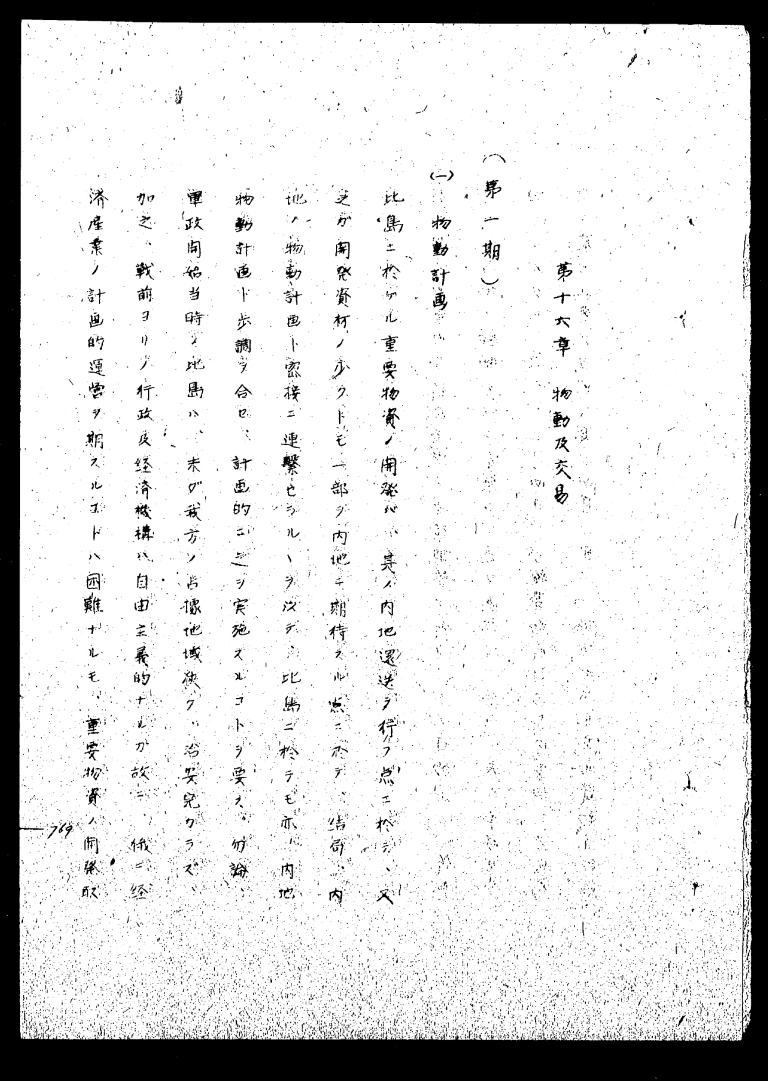 第十六章 物動及交易
(第一期)
(一) 物動計画
比島ニ於ケル重要物資ノ開発ハ、其ノ内地還送ヲ行フ点ニ於テ、又
之ガ開発資材ノ少クトモ一部ヲ内地ニ期待スル点ニ於テ、結局、内
地ノ物動計画ト密接ニ連繋セラルヽヲ以テ、比島ニ於テモ亦、内地
物動計画ト歩調ヲ合セ、計画的ニ之ヲ実施スルコトヲ要ス。勿論、
軍政開始当時ノ比島ハ、未ダ我方ノ占據地域狭ク、治安完カラズ、
加之、戦前ヨリノ行政及経済機構ハ自由主義的ナルガ故ニ、俄ニ経
済産業ノ計画的運営ヲ期スルコトハ困難ナルモ、重要物資ノ開発取
769